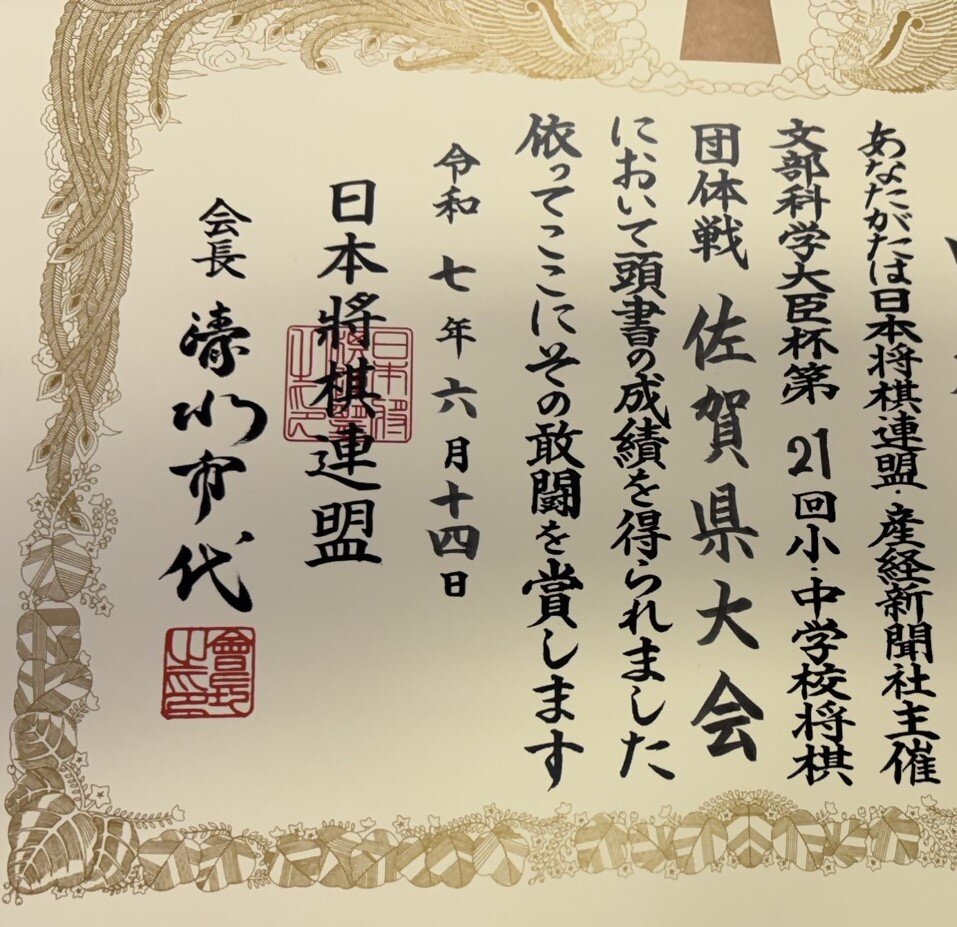 あなたがたは日本将棋連盟・産経新聞社主催
文部科学大臣杯第21回小・中学校将棋
団体戦 佐賀県大会
において頭書の成績を得られました
依ってここにその敢闘を賞します
令和七年六月十四日
日本將棋連盟
会長 清水市代